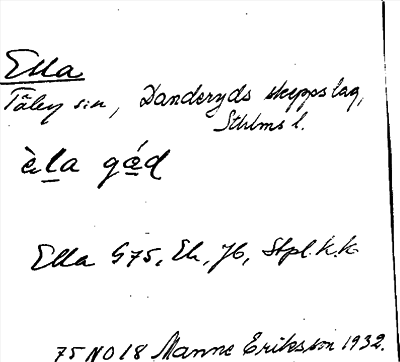 Ella
Täby sn, Danderyds skeppslag,
Sthlms l.
èla gád
Ella G75, Ek, Jb, Stpl.k.k.
75 NO 18 Manne Eriksson 1932.